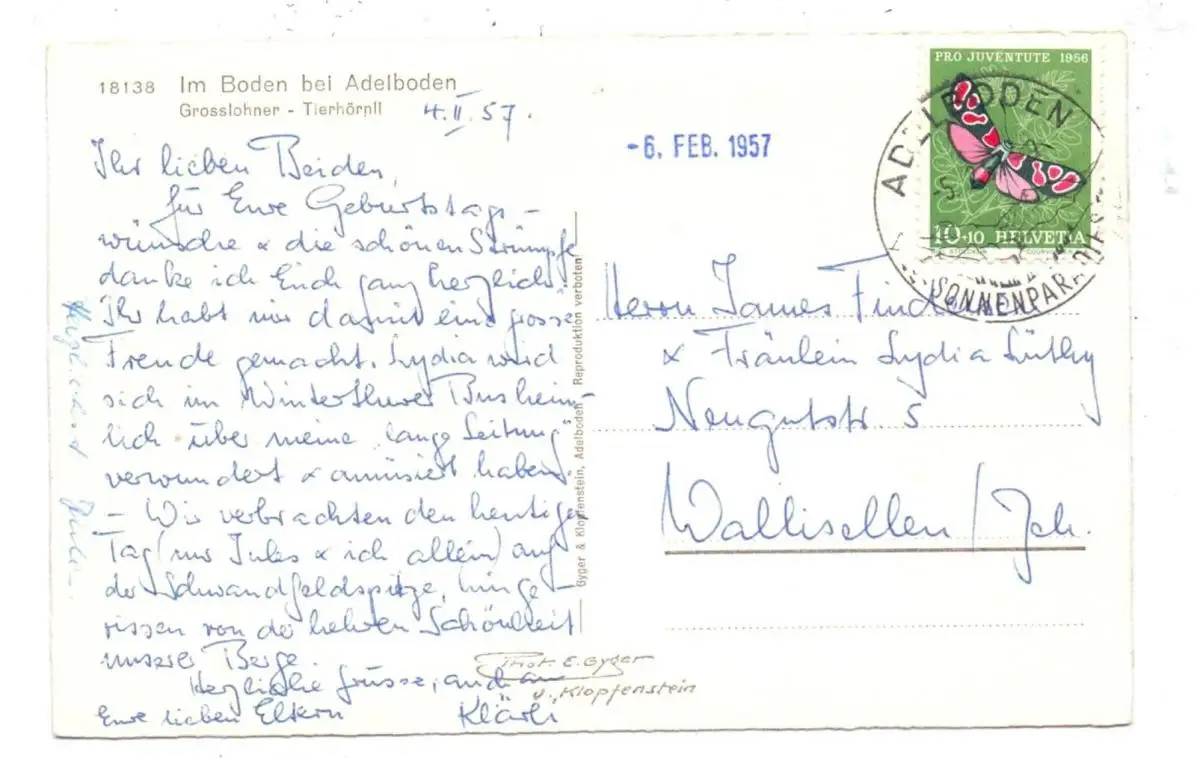 18138 Im Boden bei Adelboden
Grosslohner - Tierhörnli
4.II.57.
Ihr lieben Beiden,
für Eure Geburtstags-
wünsche & die schönen Strümpfe
danke ich Euch ganz herzlich.
Ihr habt mir damit eine grosse
Freude gemacht. Lydia wird
sich im Winterthurer Bus heim-
lich über meine "lange Leitung"
verwundert & amüsiert haben.
- Wir verbrachten den heutigen
Tag (nur Jules & ich allein) auf
der Schwandfeldspitze, hinge-
rissen von der hehren Schönheit
unserer Berge.
Herzliche Grüsse, auch an
Eure lieben Eltern Klärli
Phot. E. Gyger
u. Klopfenstein
Gyger & Klopfenstein, Adelboden Reproduktion verboten
-6. FEB. 1957
PRO JUVENTUTE 1956
10+10 HELVETIA
COURVOISIER
ADELBODEN
SONNENPARADIES
Herrn James
& Fräulein Lydia Lüthy
Neugutstr. 5
Wallisellen / Zch.